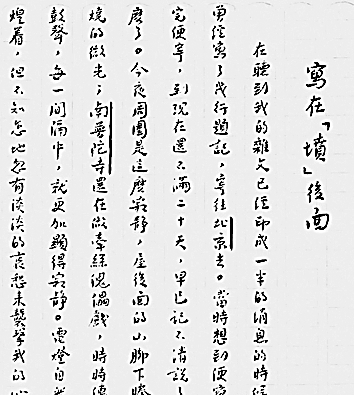 寫在「墳」後面
在聽到我的雜文已經印成一半的消息的時候
曾經寫了幾行題記,寄往北京去。當時想到便寫
完便寄,到現在還不滿二十天,早已記不清說了
麽了。今夜周圍是這麽寂靜,屋後面的山腳下騰
燒的微光;南普陀寺還在做牽絲傀儡戲,時時傳
鼓聲,每一間隔中,就更加顯得寂靜。電燈自然
煌着,但不知怎地忽有淡淡的哀愁來襲擊我的心